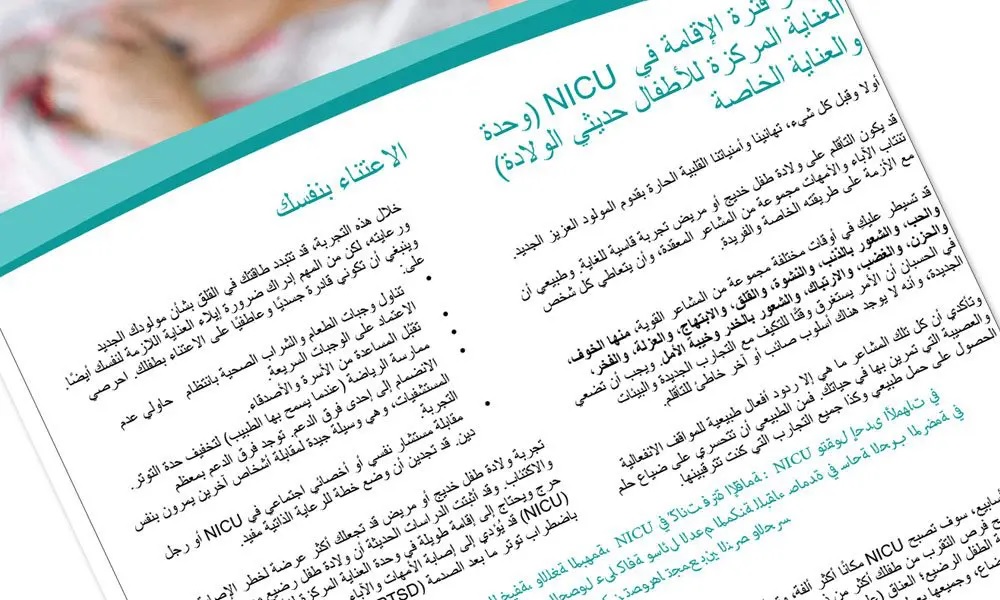 فترة الإقامة في NICU (وحدة
العناية المركزة للأطفال حديثي الولادة)
والعناية الخاصة
أولا وقبل كل شيء، تهانينا وأمنياتنا القلبية الحارة بقدوم المولود العزيز الجديد.
قد يكون التأقلم على ولادة طفل خديج أو مريض تجربة قاسية للغاية. وطبيعي أن
تنتاب الآباء والأمهات مجموعة من المشاعر المعقدة، وأن يتعاطى كل شخص
مع الأزمة على طريقته الخاصة والفريدة.
قد تسيطر عليك في أوقات مختلفة مجموعة من المشاعر القوية، منها الخوف،
والحب، والشعور بالذنب، والنشوة، والقلق، والابتهاج، والعزلة، والفخر،
والحزن، والغضب، والارتباك، والشعور بالخدر وخيبة الأمل. ويجب أن تضعي
في الحسبان أن الأمر يستغرق وقتًا للتكيف مع التجارب الجديدة والبيئات
الجديدة، وأنه لا يوجد هناك أسلوب صائب أو آخر خاطئ للتأقلم.
وتأكدي أن كل تلك المشاعر ما هي إلا ردود أفعال طبيعية للمواقف الانفعالية
والعصيبة التي تمرين بها في حياتك. فمن الطبيعي أن تتحسري على ضياع حلم
الحصول على حمل طبيعي وكذا جميع التجارب التي كنت تترقبينها.
سوف تصبح NICU مكانًا أكثر ألفة،
فرص التقرب من طفلك أكثر
الطفل الرضيع؛ العناق
وجميعها
الاعتناء بنفسك
خلال هذه التجربة، قد تتبدد طاقتك في القلق بشأن مولودك الجديد
ورعايته، لكن من المهم إدراك ضرورة إيلاء العناية اللازمة لنفسك أيضًا.
وينبغي أن تكوني قادرة جسديًا وعاطفيًا على الاعتناء بطفلك. احرصي
على:
• تناول وجبات الطعام والشراب الصحية بانتظام حاولي عدم
الاعتماد على الوجبات السريعة
• تقبّل المساعدة من الأسرة والأصدقاء.
• ممارسة الرياضة (عندما يسمح بها الطبيب) لتخفيف حدة التوتر.
• الانضمام إلى إحدى فرق الدعم. توجد فرق الدعم بمعظم
المستشفيات، وهي وسيلة جيدة لمقابلة أشخاص آخرين يمرون بنفس
التجربة
• مقابلة مستشار نفسي أو أخصائي اجتماعي في NICU أو رجل
دين. قد تجدين أن وضع خطة للرعاية الذاتية مفيد.
تجربة ولادة طفل خديج أو مريض قد تجعلك أكثر عرضة لخطر الإصابة
والاكتئاب. وقد أثبتت الدراسات الحديثة أن ولادة طفل رضيع
حرج ويحتاج إلى إقامة طويلة في وحدة العناية المركزة
(NICU) قد يؤدي إلى إصابة الأمهات والآباء
باضطراب توتر ما بعد الصدمة (PTSD)